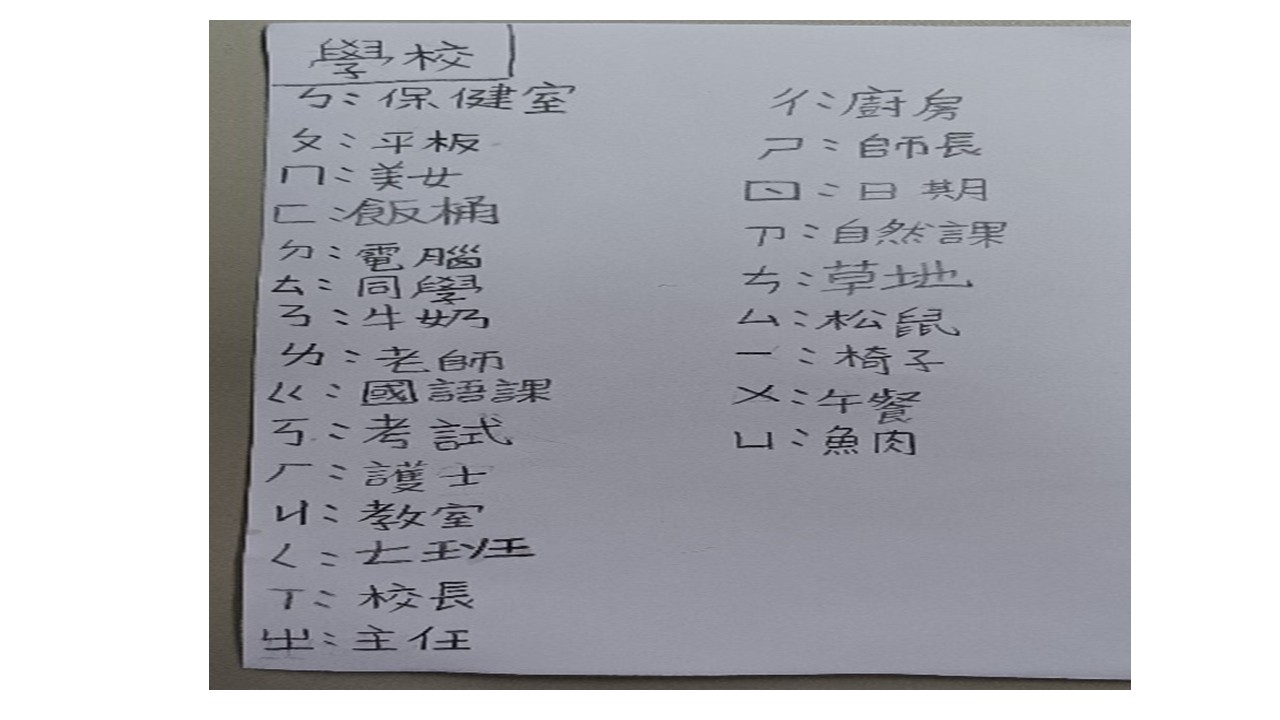 學校
ㄅ:保健室
ㄆ:平板
ㄇ:美女
ㄈ:飯桶
ㄉ:電腦
ㄊ:同學
ㄋ:牛奶
ㄌ:老師
ㄍ:國語課
ㄎ:考試
ㄏ:護士
ㄐ:教室
ㄑ:七班
ㄒ:校長
ㄓ:主任
ㄔ:廚房
ㄕ:師長
ㄖ:日期
ㄗ:自然課
ㄘ:草地
ㄙ:松鼠
ㄧ:椅子
ㄨ:午餐
ㄩ:魚肉